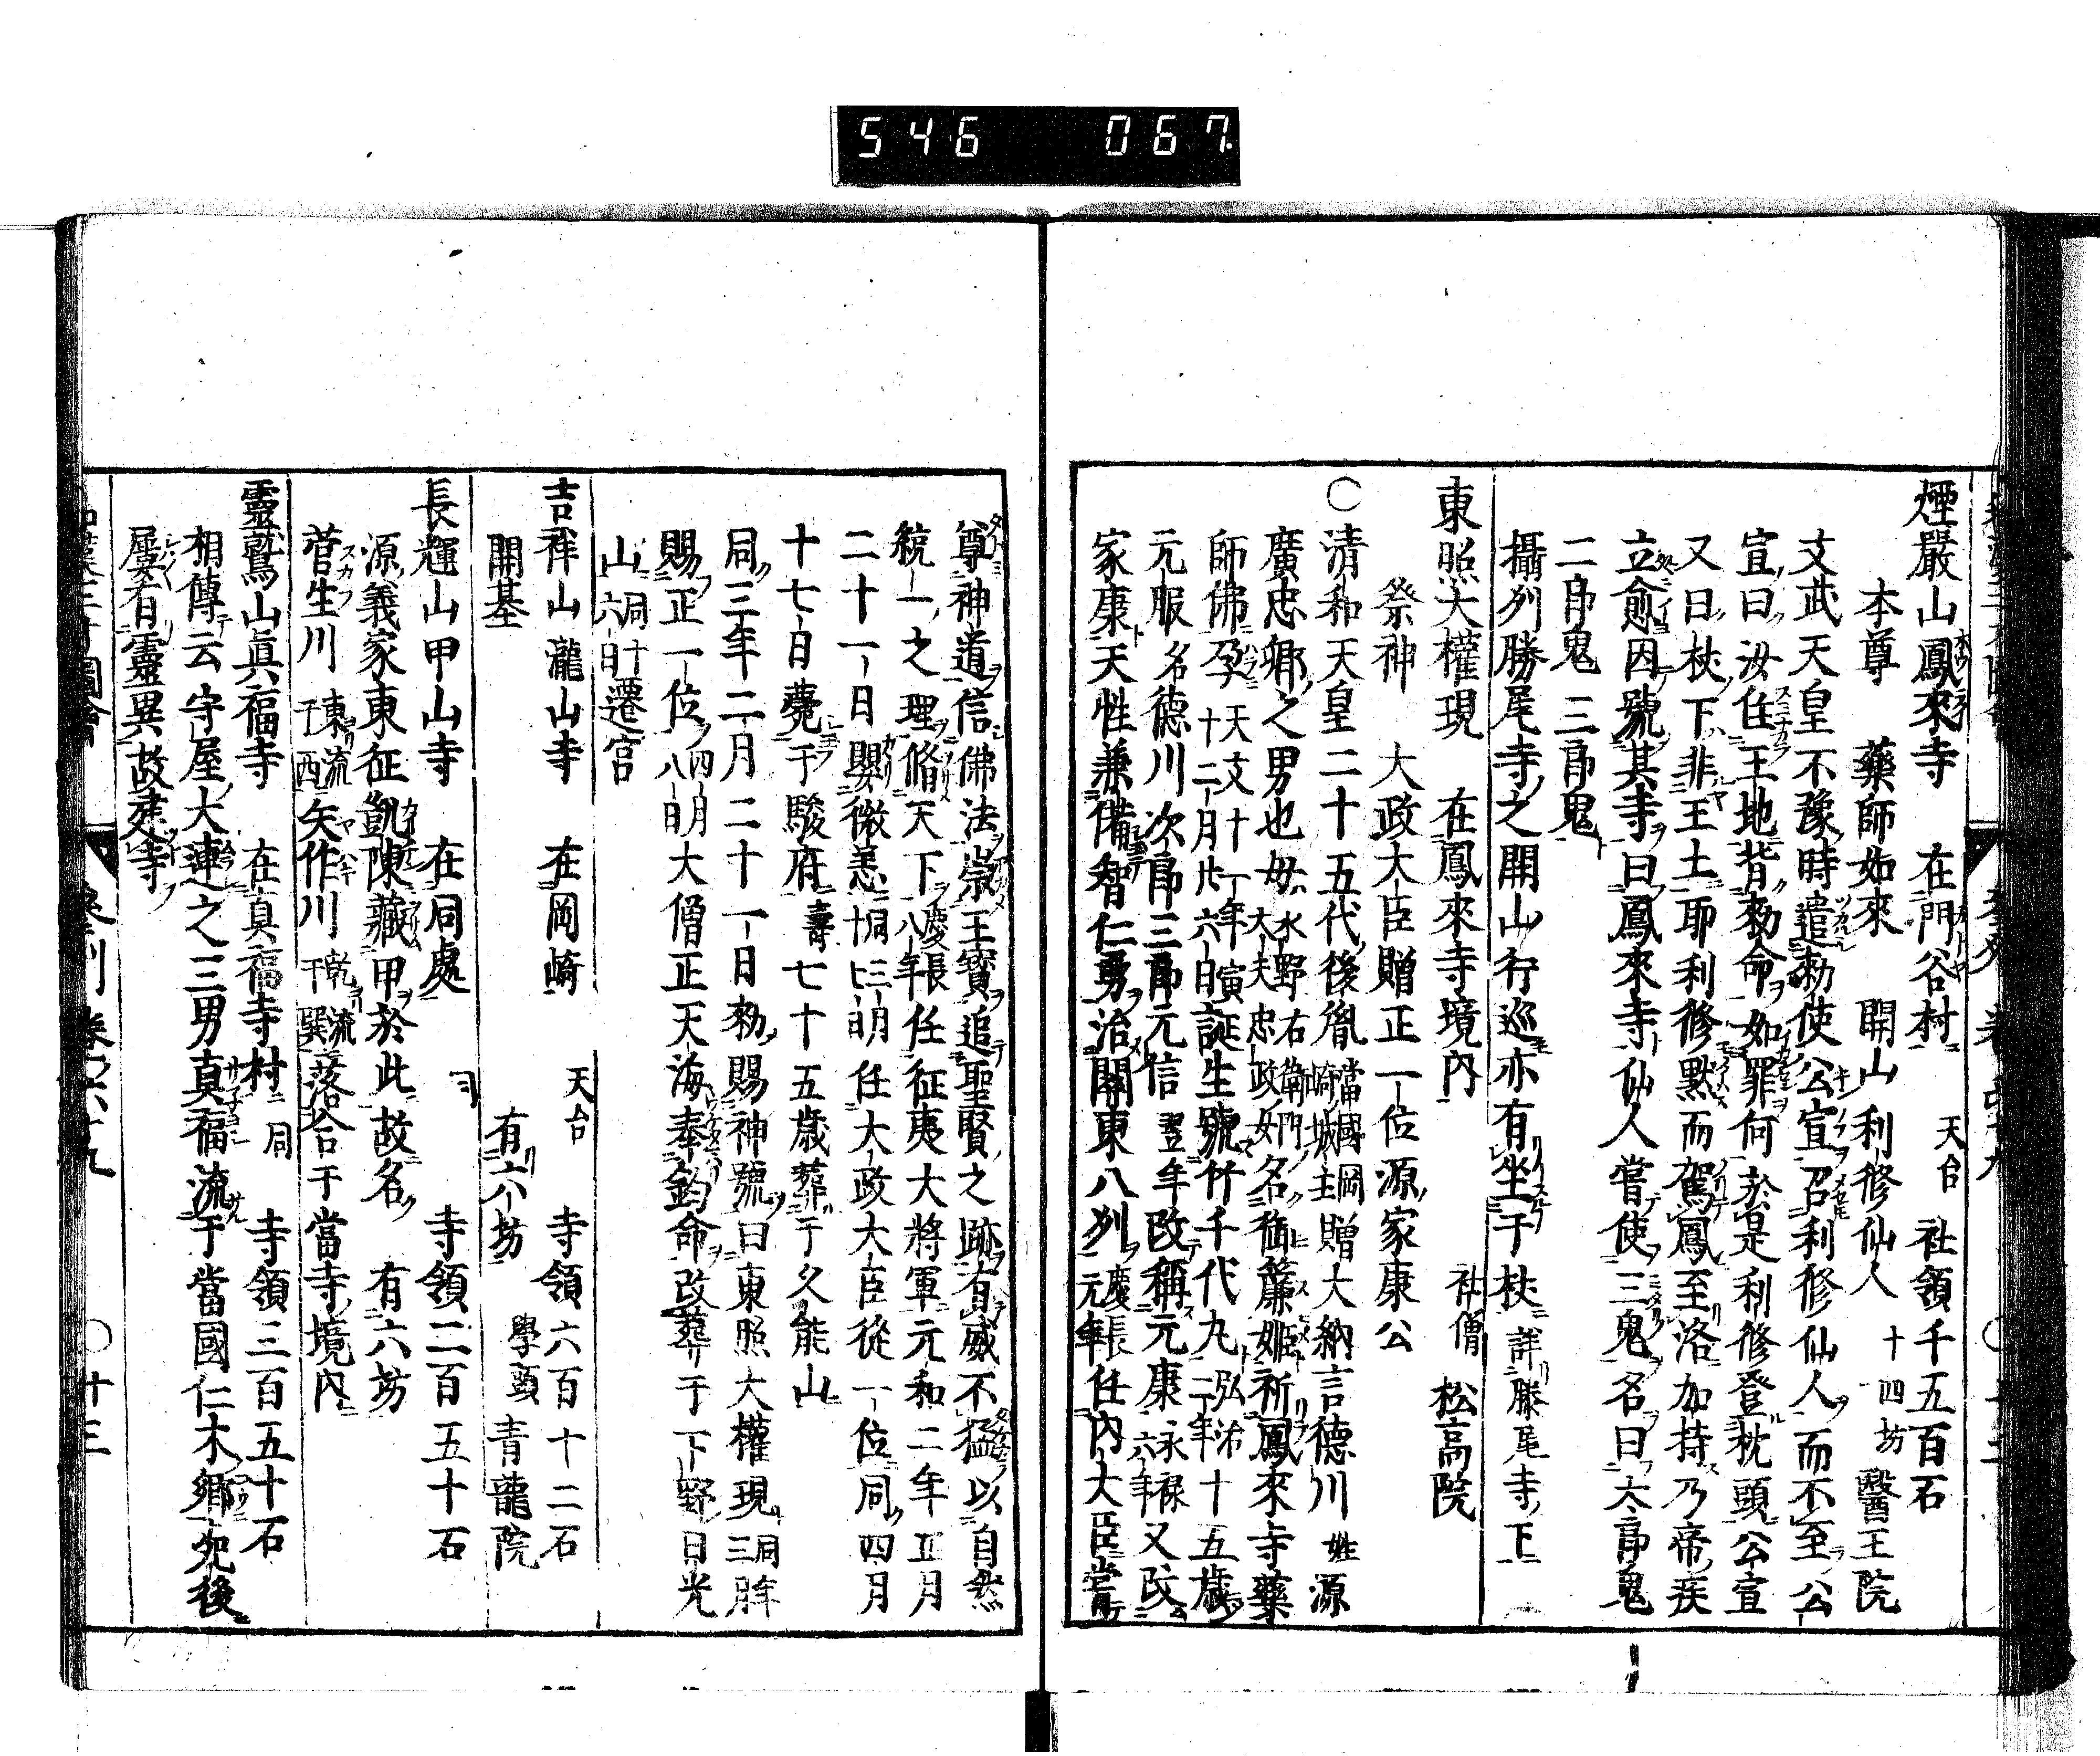 546 067
煙嚴山鳳來寺 在門谷村 天台 社領千五百石
本尊 藥師如來 開山利修仙人 十四坊 醫王院
文武天皇不豫時遣勅使公宣召利修仙人而不至公
宣曰汝住王地背勅命如罪何於是利修登枕頭公宣
又曰枝下非王土耶利修黙而駕鳳至洛加持乃帝疾
立愈因號其寺曰鳳來寺仙人嘗使三鬼名曰太郎鬼
二郎鬼三郎鬼
攝州勝尾寺之開山行巡亦有坐于枝 詳勝尾寺下
東照大權現 在鳳來寺境内 社僧 松高院
祭神 大政大臣贈正一位源家康公
〇清和天皇二十五代後胤 當國岡崎城主 贈大納言德川 姓源
廣忠卿之男也母 水野右衛門大夫忠政女 名御簾姬祈鳳來寺藥
師佛孕 天文十一年寅十二月廿六日 誕生號竹千代丸 弘治二年 十五歳
元服 名德川次郎三郎元信 翌年改稱元康 永禄六年 又改
家康天性兼備智仁勇治關東八州 慶長元年 任内大臣嘗
尊神道信佛法崇王寳追聖賢之跡有威不猛以自然
統一之理脩天下 慶長八年 任征夷大將軍元和二年正月
二十一日嬰微恙 同三月十七日 任大政大臣從一位同四月
十七日薨于駿府 壽七十五歳葬于久能山
同三年二月二十一日勅賜神號曰東照大權現 同年三月
賜正一位 四月八日 大僧正天海奉鈞命改葬于下野日光
山 同十六日 遷宮
吉祥山瀧山寺 在岡崎 天台 寺領六百十二石
開基 有六坊 學頭 青龍院
長輝山甲山寺 在同處 寺領二百五十石
源義家東征凱陳藏甲於此故名 有六坊
菅生川 東流于西 矢作川 乾流于巽 落合于當寺境内
靈鷲山眞福寺 在真福寺村 同 寺領三百五十石
相傳云守屋大連之三男真福流于當國仁木鄉死後
屡有靈異故建寺
參州 卷六十九 〇十三